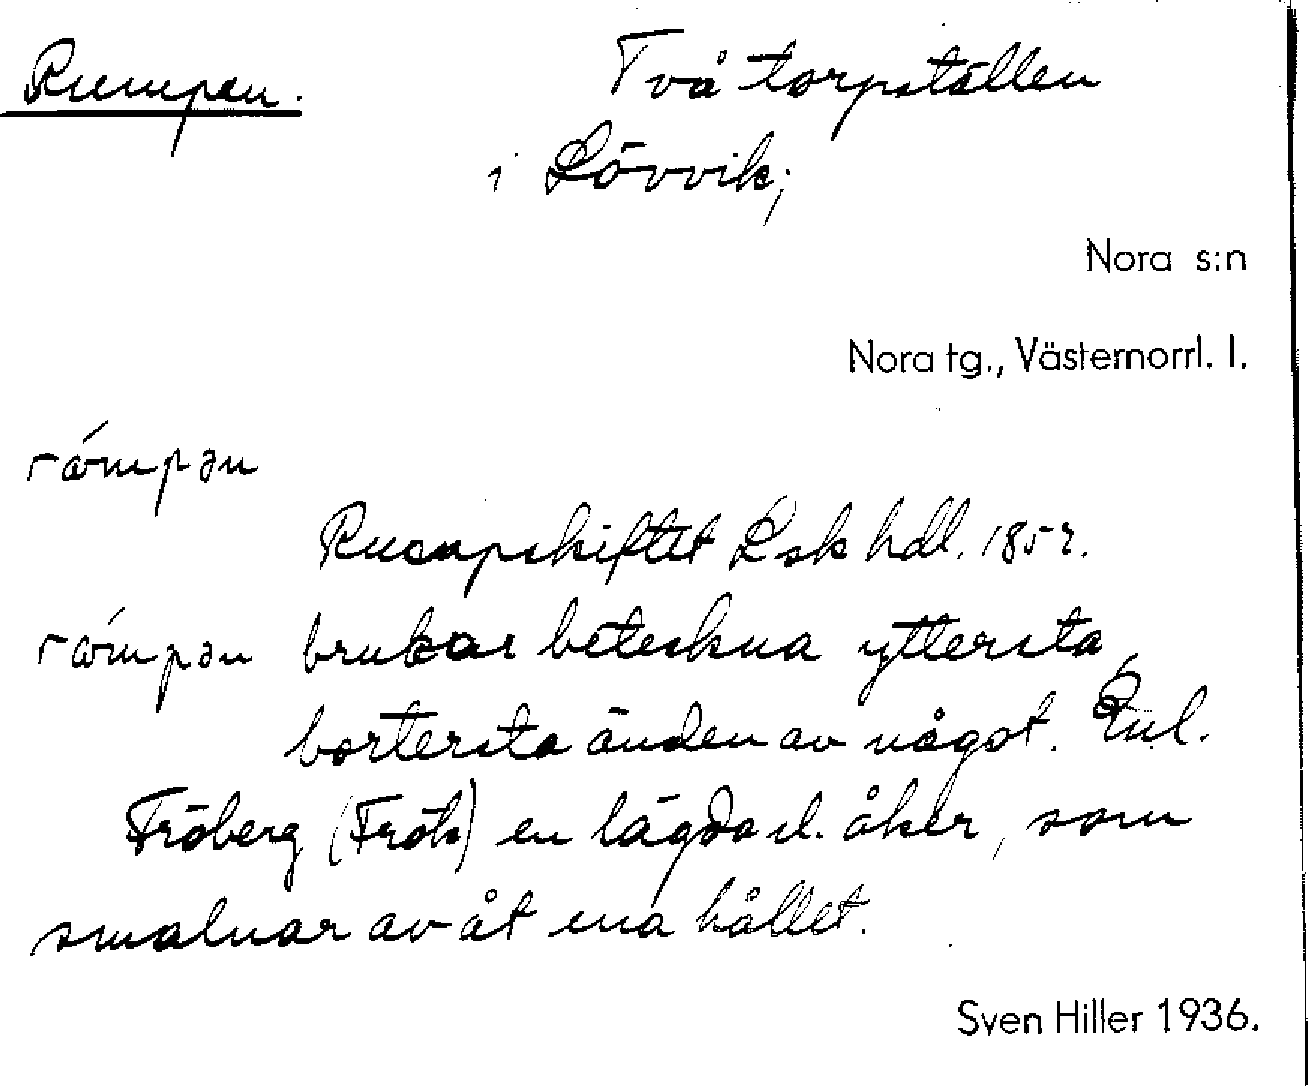 Rumpen.
Två torpställen
i Lövvik;
Nora s:n
Nora tg., Västernorrl. l.
rǿmpən
Rumpskiftet Lsk hdl. 1852.
rǿmpən brukar beteckna yttersta,
bortersta änden av något. Enl.
Fröberg (Frök) en lägda el. åker, som
smalnar av åt ena hållet.
Sven Hiller 1936.